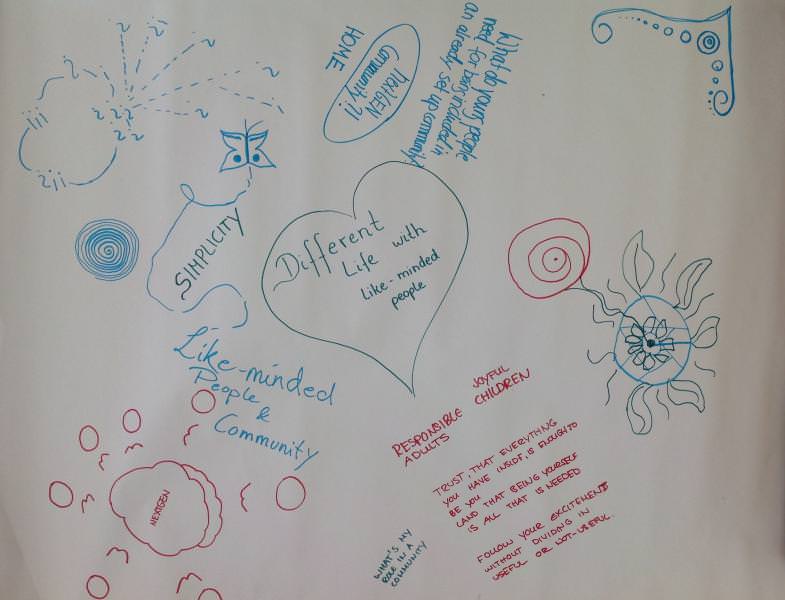 HOME
NEXTGEN
Community?!
What do young people
need for being included in
an already set up community?
SIMPLICITY
Different
Life with
like-minded
people
Like-minded
People
&
Community
JOYFUL
RESPONSIBLE CHILDREN
ADULTS
TRUST, THAT EVERYTHING
YOU HAVE INSIDE, IS ENOUGH TO
BE YOU
(AND THAT BEING YOURSELF
IS ALL THAT IS NEEDED
FOLLOW YOUR EXCITEMENT
WITHOUT DIVIDING IN
USEFUL OR NOT-USEFUL.
NEXTGEN
WHAT'S MY
ROLE IN A
COMMUNITY